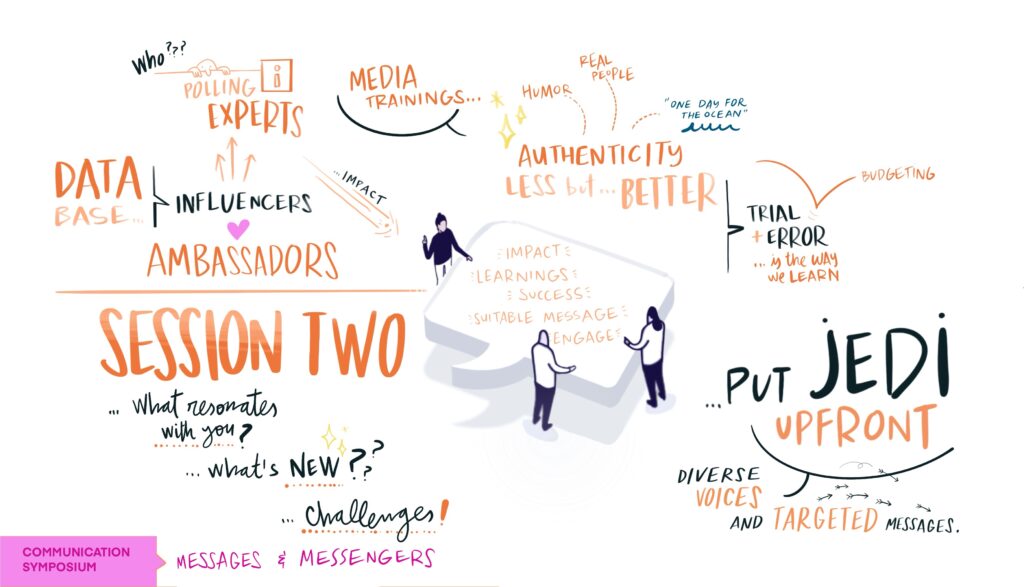 Who???
POLLING
EXPERTS
DATA
BASE...
INFLUENCERS
AMBASSADORS
...IMPACT
MEDIA
TRAININGS...
HUMOR
REAL
PEOPLE
"ONE DAY FOR
THE OCEAN"
AUTHENTICITY
LESS but... BETTER
BUDGETING
TRIAL
+ ERROR
... is the WAY
we LEARN
IMPACT
LEARNINGS
SUCCESS
SUITABLE MESSAGE
ENGAGE
SESSION TWO
... What resonates
with you?
... what's NEW???
... challenges!
...PUT JEDI
UPFRONT
DIVERSE
VOICES
AND TARGETED MESSAGES.
COMMUNICATION
SYMPOSIUM
MESSAGES & MESSENGERS